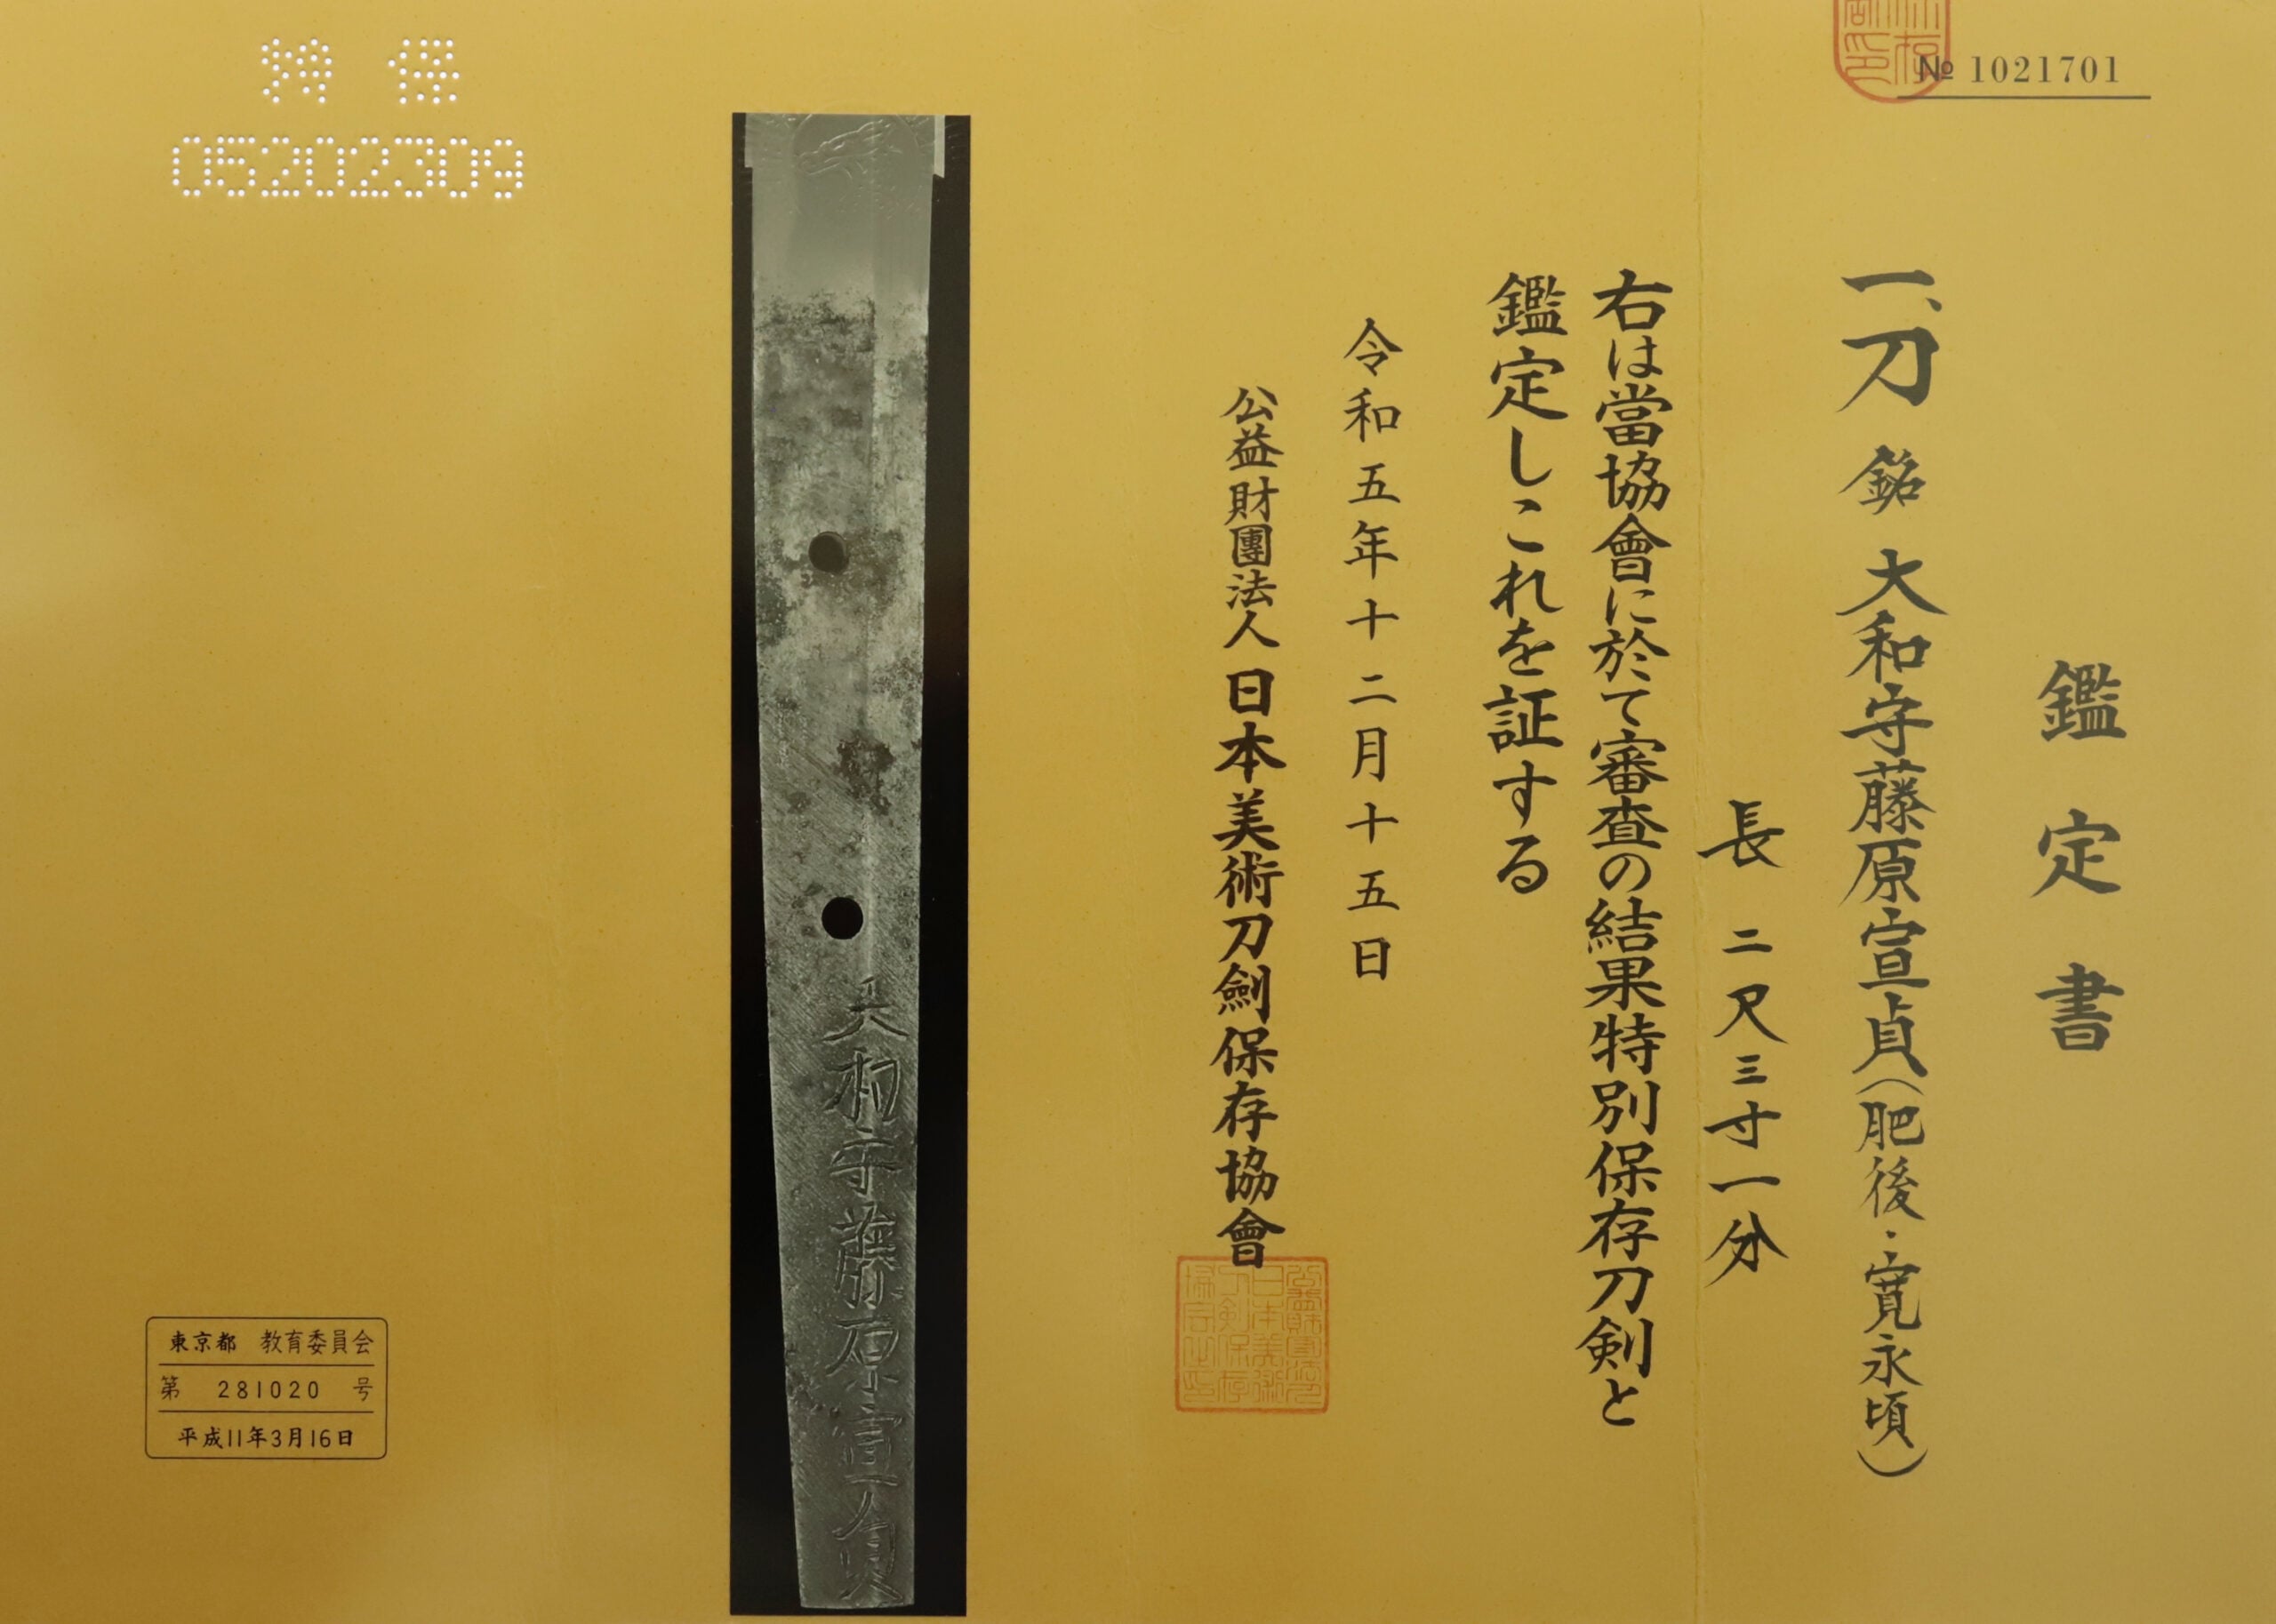 № 1021701
鑑定書
一、刀 銘 大和守藤原宣貞(肥後・寛永頃)
長 二尺三寸一分
右は當協會に於て審査の結果特別保存刀剣と
鑑定しこれを証する
令和五年十二月十五日
公益財團法人 日本美術刀劍保存協會
大和守藤原宣貞
特 保
05202309
東京都 教育委員会
第 281020 号
平成11年3月16日